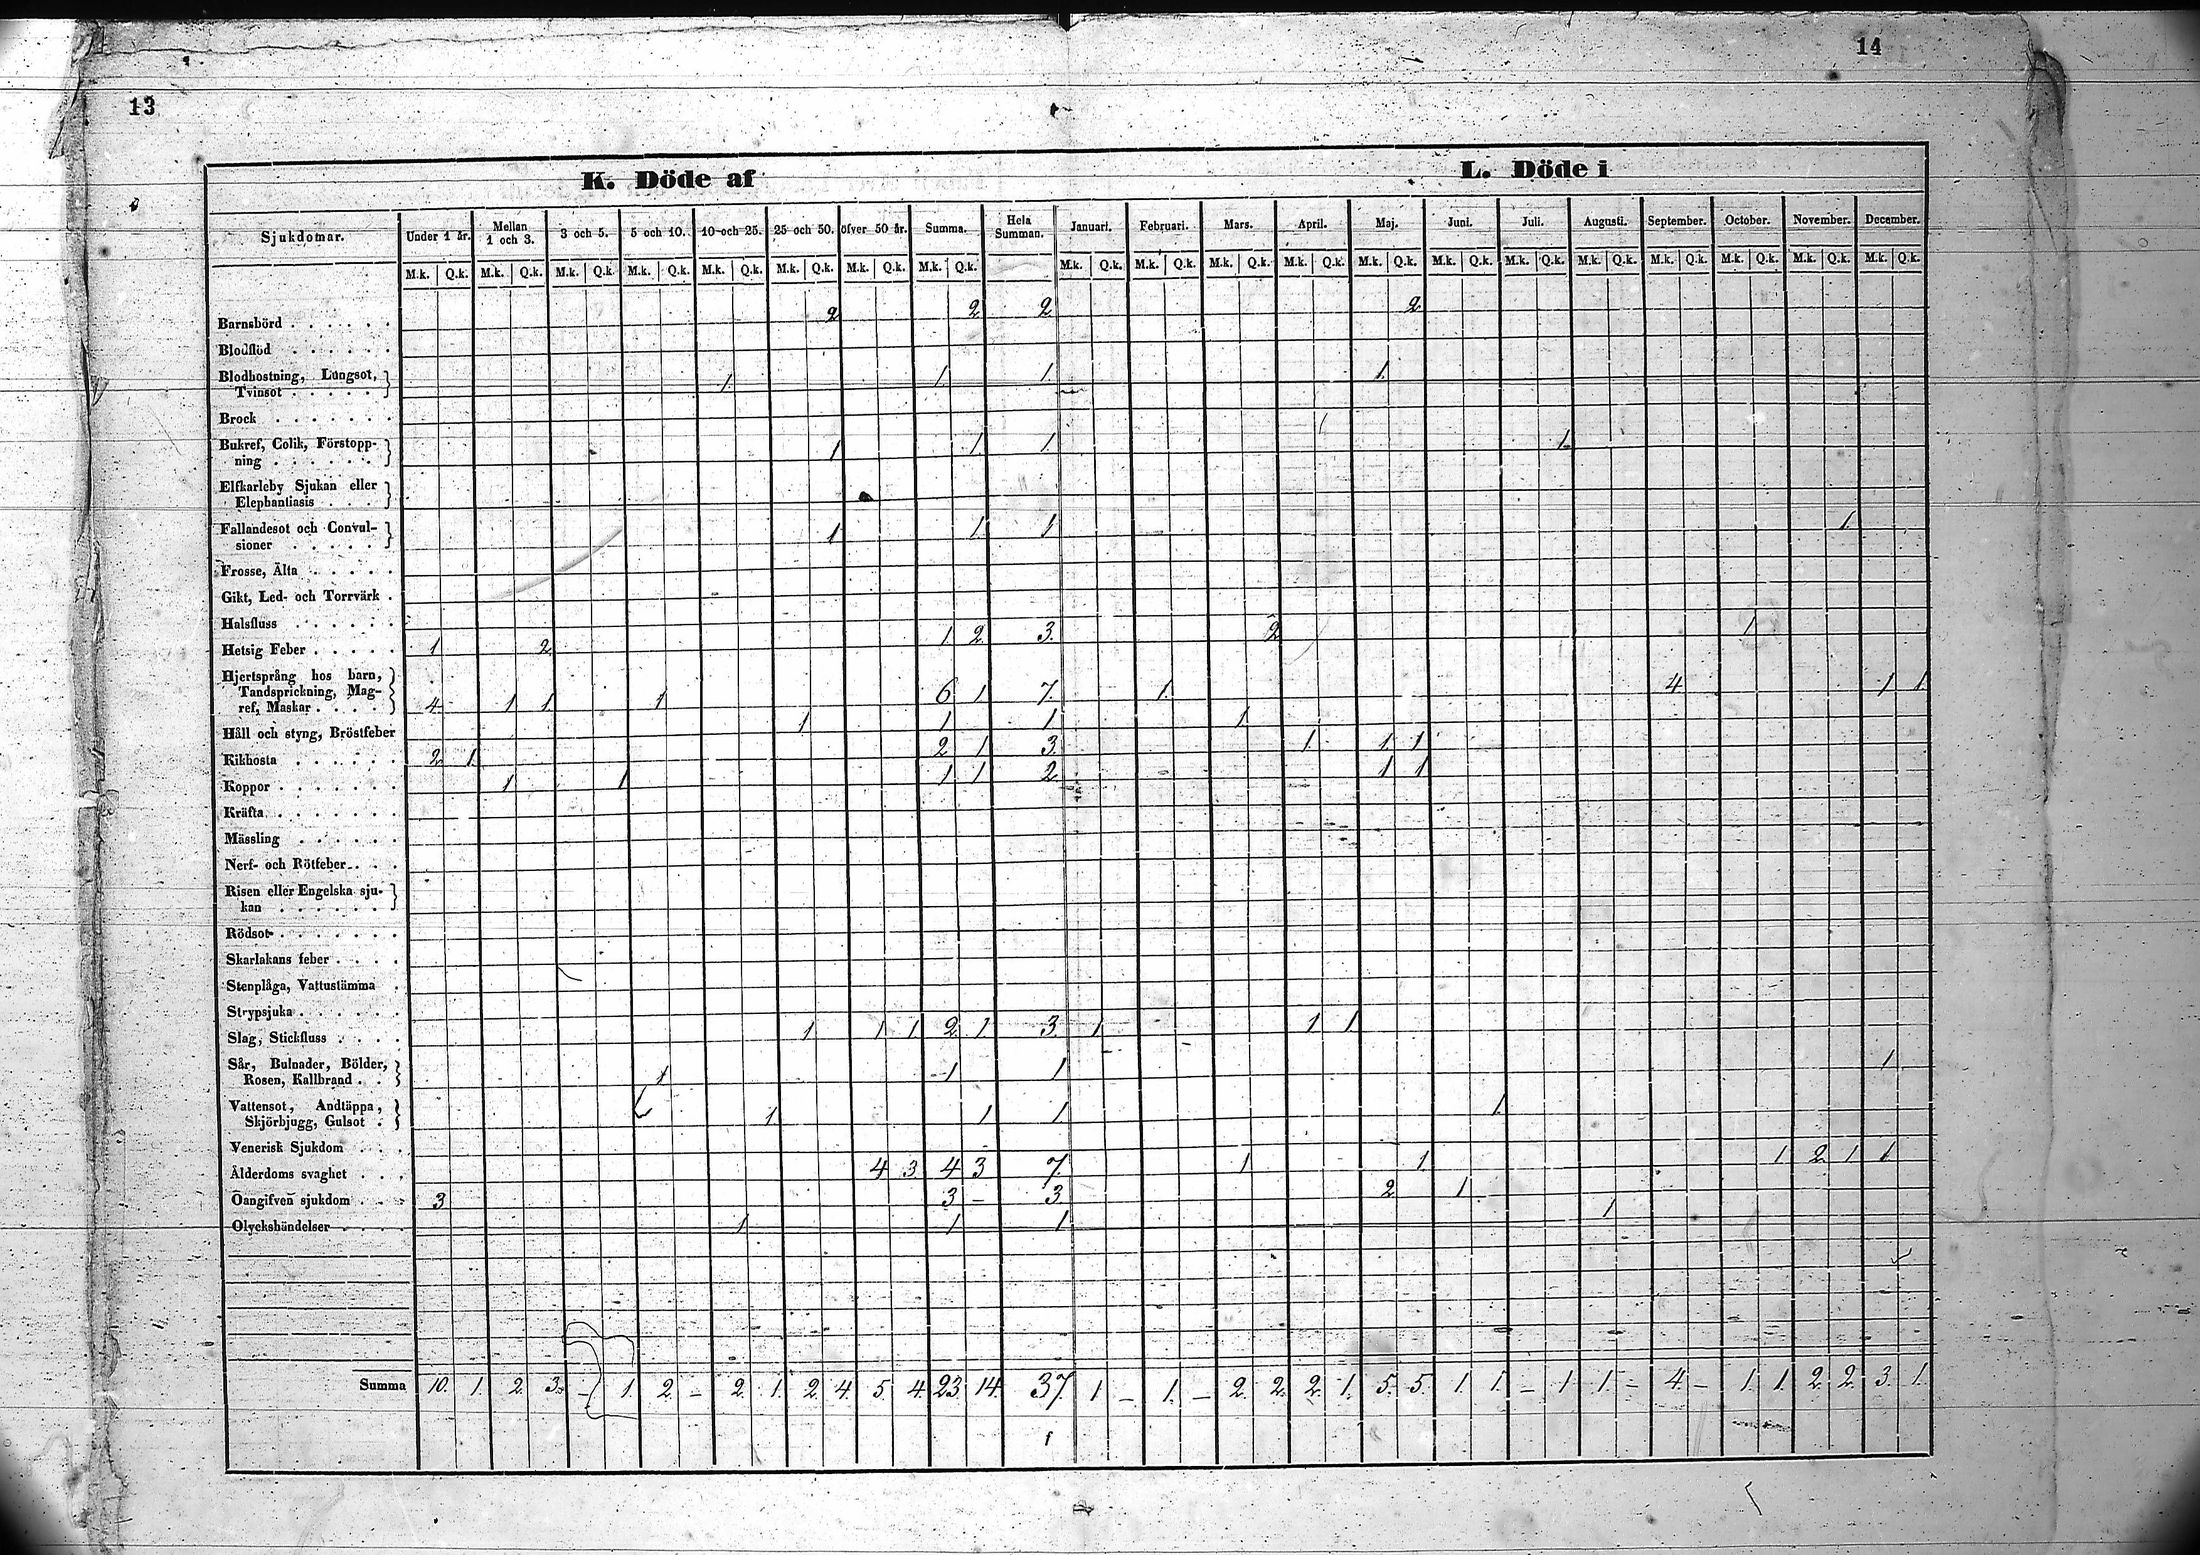 14
13
K. Döde af L. Döde i
Sjukdomar. Under 1 år. Mellan 1 och 3. 3 och 5. 5 och 10. 10 och 25. 25 och 50. öfver 50 år. Summa. Hela Summan. Januari. Februari. Mars. April. Maj. Juni. Juli. Augusti. September. October. November. December.
M.k. Q.k. M.k. Q.k. M.k. Q.k. M.k. Q.k. M.k. Q.k. M.k. Q.k. M.k. Q.k. M.k. Q.k. M.k. Q.k. M.k. Q.k. M.k. Q.k. M.k. Q.k. M.k. Q.k. M.k. Q.k. M.k. Q.k. M.k. Q.k. M.k. Q.k. M.k. Q.k. M.k. Q.k. M.k. Q.k.
Barnsbörd . . . . . . 2 2 2 2
Blodflöd . . . . . .
Blodhostning, Lungsot,
Tvinsot . . . . . 1. 1. 1. 1.
Brock . . . . . .
Bukref, Colik, Förstopp-
ning . . . . . . 1 1 1. 1.
Elfkarleby Sjukan eller
Elephantiasis . . .
Fallandesot och Convul-
sioner . . . . . 1 1 1 1
Frosse, Älta . . . . .
Gikt, Led- och Torrvärk .
Halsfluss . . . . . .
Hetsig Feber . . . . . 1 2. 1. 2. 3. 2 1
Hjertsprång hos barn,
Tandsprickning, Mag-
ref, Maskar . . . . 4. 1 1 1 6 1 7. 1. 4 1 1.
Håll och styng, Bröstfeber 1 1 1. 1.
Kikhosta . . . . . . 2. 1. 2 1 3. 1 1 1
Koppor . . . . . . . 1 1 1 1 2 1 1
Kräfta . . . . . . .
Mässling . . . . . .
Nerf- och Rötfeber . . .
Risen eller Engelska sju-
kan . . . . . .
Rödsot . . . . . . .
Skarlakans feber . . . .
Stenplåga, Vattustämma .
Strypsjuka . . . . . .
Slag, Stickfluss . . . . 1 1 1. 2. 1. 3. 1. 1 1.
Sår, Bulnader, Bölder,
Rosen, Kallbrand . . 1 1 1 1.
Vattensot, Andtäppa,
Skjörbjugg, Gulsot . 1. 1 1. 1.
Venerisk Sjukdom . . .
Ålderdoms svaghet . . . 4 3. 4 3 7. 1 1 1. 2. 1 1.
Oangifven sjukdom . . . 3 3 – 3 2 1
Olyckshändelser . . . . 1 1 1. 1
Summa 10. 1. 2. 3. – 1. 2. – 2. 1. 2. 4. 5 4. 23. 14. 37. 1 – 1. – 2. 2. 2. 1. 5. 5. 1. 1. – 1 1. – 4. – 1. 1. 2. 2. 3. 1.